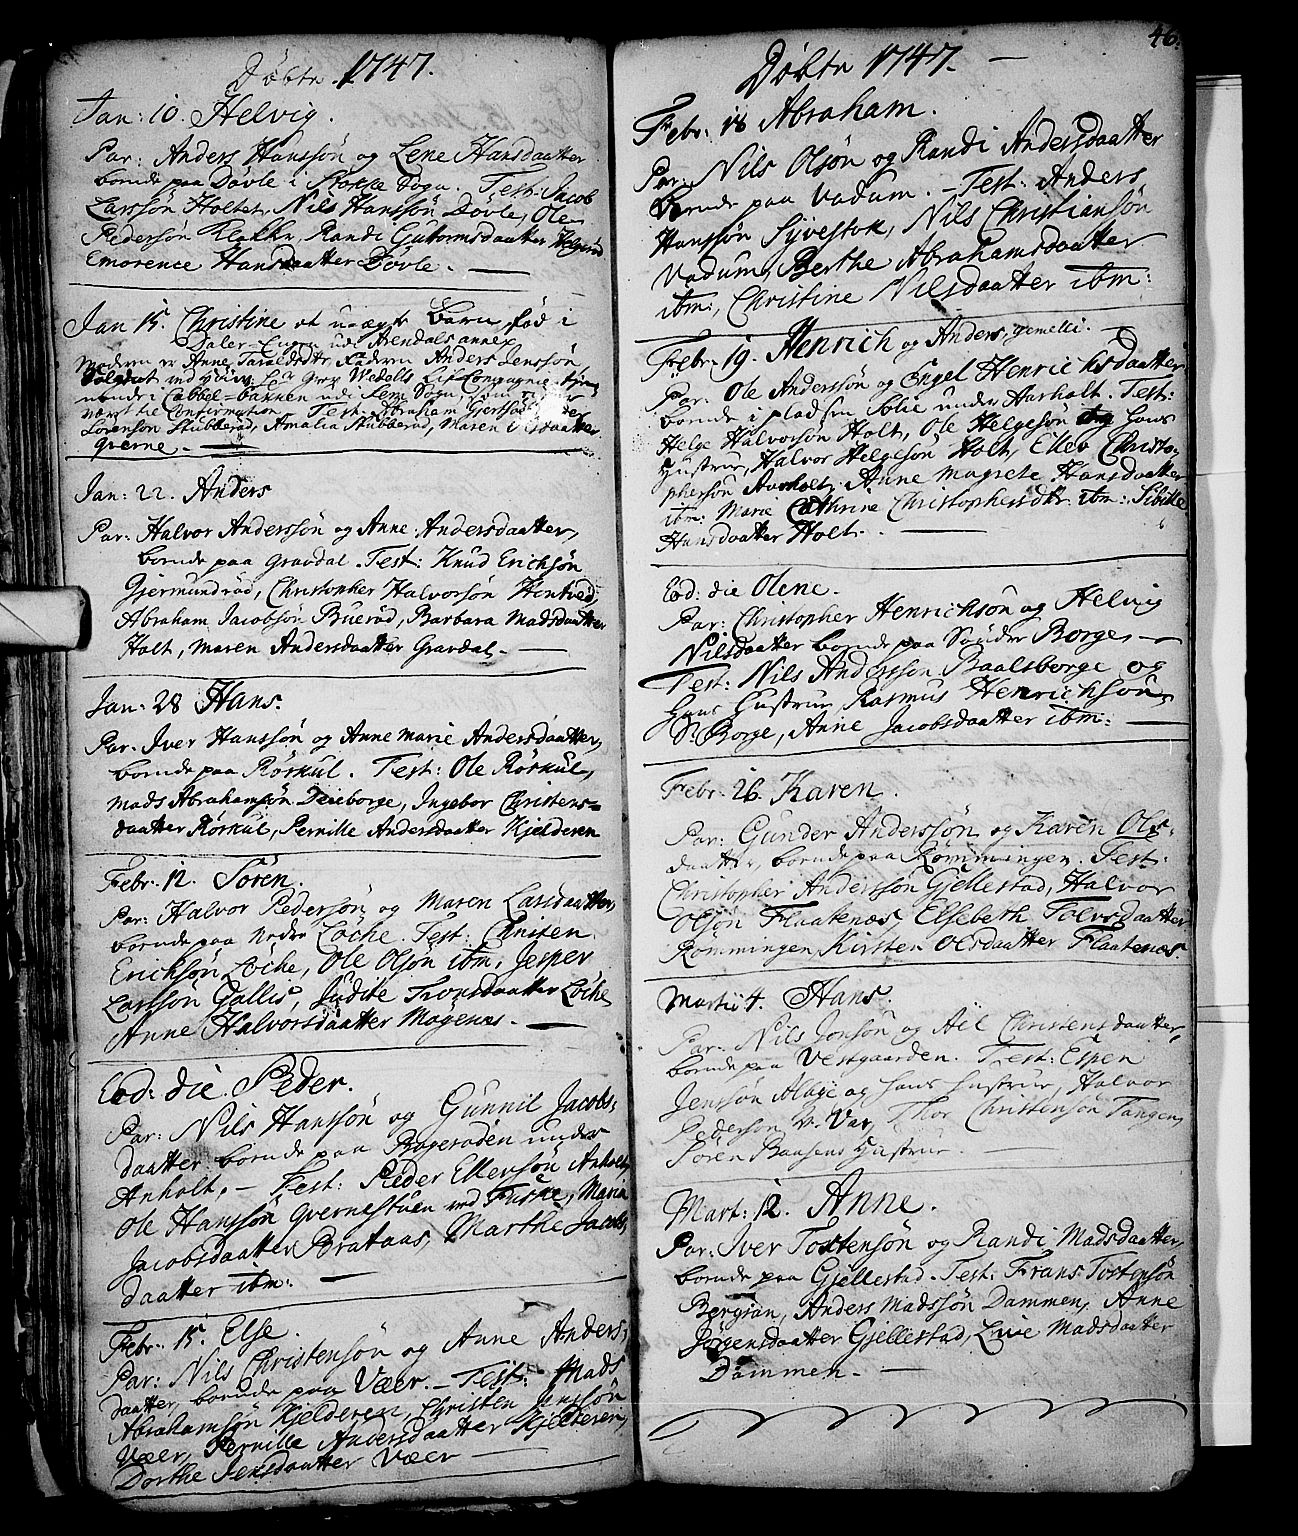 Döbte 1747.
Jan: 10. Helvig.
Par: Anders Hanssön og Lene Hansdaatter
boende paa Dövle i Stokke Sogn. Test: Jacob
Larssön Holtet, Nils Hanssön Dövle, Ole
Pedersön Klakke, Randi Gutormsdaatter
Emorence Hansdaatter Dövle.
Jan 15. Christine et uægte Barn, föd i
udi Arendals annex
Moderen er Anne Faderen Anders Jenssön
Soldat ved Lif Compagnie
udi Sem Sogn, som
næst til Confirmation. Test: Abraham Gjertsön
Sörenssön Stubberöd, Amalia Stubberöd, Maren Olsdaatter
Qverne.
Jan: 22. Anders
Par: Halvor Anderssön og Anne Andersdaatter,
boende paa Gravdal. Test: Knud Erichsön
Gjermundröd, Christopher Halvorsön Hontvedt,
Abraham Jacobsön Bueröd, Barbara Madsdaatter
Holt, Maren Andersdaatter Gravdal.
Jan: 28 Hans.
Par: Iver Hanssön og Anne Marie Andersdaatter,
boende paa Rörkul. Test: Ole Rörkul,
Mads Abrahamsön Deieborge, Ingebor Christens-
daatter Rörkul, Pernille Andersdaatter Kjelderen
Febr: 12. Sören.
Par: Halvor Pedersön og Maren Larsdaatter,
boende paa Nedre Löche. Test: Christen
Erichsön Löche, Ole Olsön ibm: Jesper
Larssön Gallis, Judite Tronsdaatter Löche
Anne Halvorsdaatter Mogenæs.
Eod: die Peder.
Par: Nils Hanssön og Gunnil Jacobs:
daatter boende paa Bogeröden under
Anholt, Test: Peder Ellefsön Anholt,
Ole Hanssön Qvernestuen ved Fuske, Maria
Jacobsdaatter Brataas, Marthe Jacobs,
daatter ibm:
Febr: 15. Else.
Par: Nils Christensön og Anne Anders:
daatter, boende paa Væer. Test: Mads
Abrahamsön Kjelderen, Christen Jenssön
Væer, Pernille Andersdaatter Kjelderen,
Dorthe Jensdaatter Væer
46.
Döbte 1747.
Febr: 18 Abraham.
Par: Nils Olsön og Randi Andersdaatter
boende paa Vadum. Test: Anders
Hanssön Syvestok, Nils Christiansön
Vadum, Berthe Abrahamsdaatter
ibm:, Christine Nilsdaatter ibm:
Febr: 19. Henrich og Anders, gemelli.
Par: Ole Anderssön og Engel Henrichsdaatter
boende i pladsen Solie under Aarholt. Test:
Helge Halvorsön Holt, Ole Helgesön og hans
Hustrue, Halvor Helgesön Holt, Ellev Christo-
phersön Aarholt, Anne Magrete Hansdaatter
ibm: Marie Cathrine Christophersdtr. ibm: Sibille
Hansdaatter Holt.
Eod: die Olene.
Par: Christopher Henrichsön og Helvig
Nilsdaatter boende paa Söndre Borge,
Test: Nils Anderssen Baalsborge og
Hans Hustrue, Rasmus Henrichsön
S: Borge, Anne Jacobsdaatter ibm:
Febr: 26. Karen.
Par: Gunder Anderssön og Karen Ols-
daatter, boende paa Römmingen. Test:
Christopher Anderssön Gjellestad, Halvor
Olsön Flaatenæs, Elsebeth Tolvsdaatter
Römmingen, Kirsten Olsdaatter Flaatenæs.
Martii 4. Hans.
Par: Nils Jonsön og Ail Christensdaatter,
boende paa Vestgaarden. Test: Espen
Jenssön og hans Hustrue, Halvor
Pedersön Thor Christensön Tangen,
Sören Baasens Hustrue.
Mart: 12. Anne.
Par: Iver Tostensön og Randi Madsdaatter,
boende paa Gjellestad. Test: Frans Tostensön
Bergian, Anders Madssön Dammen, Anne
Jörgensdaatter Gjellestad, Live Madsdaatter
Dammen.